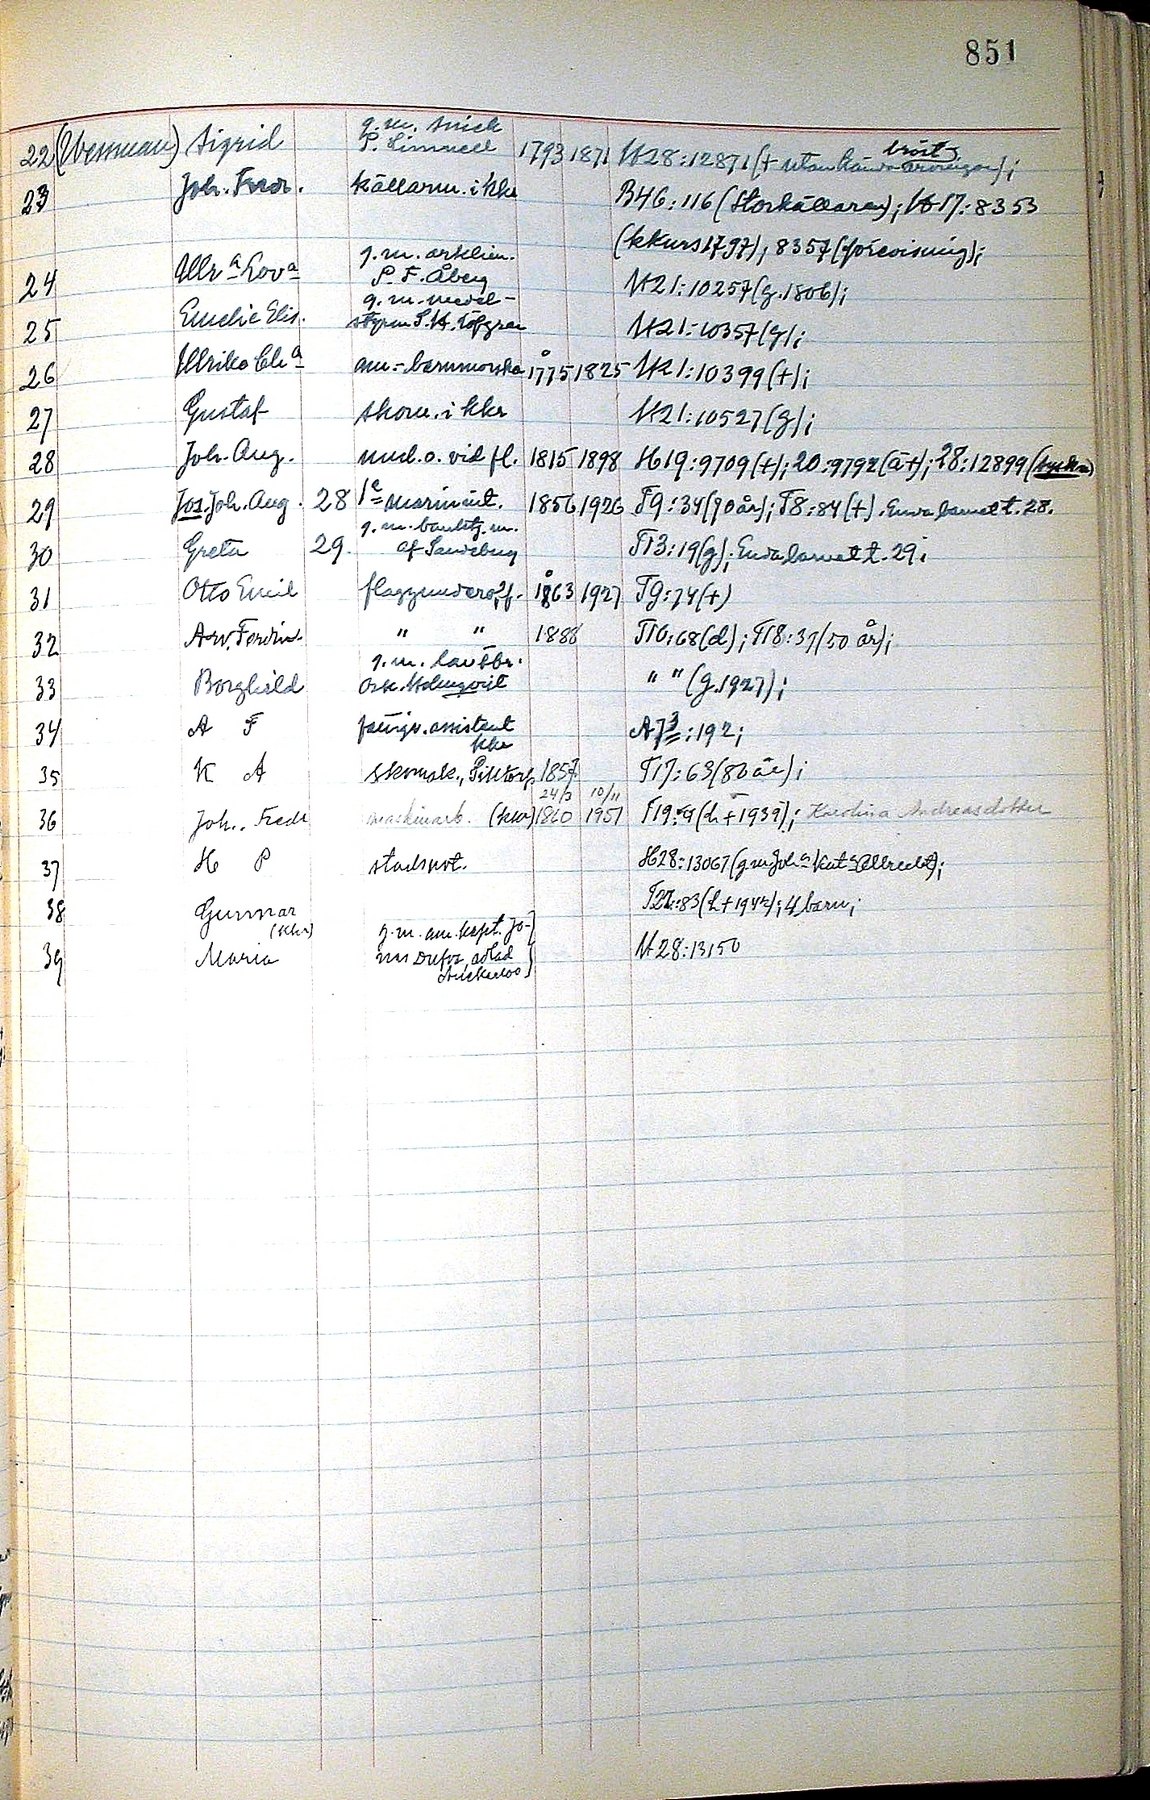 851
g.m. snick.
22 (Wessman) Sigrid P. Limnell 1793 1871 H28:12871 (+ utan kända arvingar);
23 Joh. Fredr. källarm. i kkr B46:116 (Storkällaren); H17:8353
(kkurs 1797); 8357 (förevisning);
g.m. arklim.
24 Ulr a Lov a P. F. Åberg H21:10257 (g. 1806);
g.m. medel-
25 Emelie Elis. styrm S. H. Löfgren H21:10357 (g);
26 Ulrika Chr a am.- barnmorska 1775 1825 H21:10399 (+);
27 Gustaf skom. i kkr H21:10527 (g);
28 Joh. Aug. und. o. vid fl. 1815 1898 H19:9709 (+); 20:9792 (ä+); 28:12899
29 Jos. Joh. Aug. 28 1e marinint. 1856 1926 T9:34 (70 år); T8:84 (+). Enda barnet t. 28.
g.m. banktj.m.
30 Greta 29. af Sandeberg T13:19 (g); Enda barnet t. 29;
31 Otto Emil flaggundero,f. 1863 1927 T9:74 (+)
32 Arv. Ferdin. " " 1888 T10:68 (d); T18:37 (50 år);
g.m. lantbr.
33 Borghild Osk. Holmqvist " " (g. 1927);
34 A F fängv. assistent A73:192;
kkr
35 K A skomak., 1857 T17:63 (80 år);
24/3 10/11
36 Joh. Fredr maskinarb. (kkr) 1860 1951 T19:9 (h + 1939); Karolina Andreasdotter
37 H P stadsnot. H28:13067 (g m Joh a Kat a Albrecht);
38 Gunnar T22:83 (h + 1942); 4 barn;
(kkr) g.m. am. kapt. Jo-
39 Maria nas Dufva, adlad H28:13150